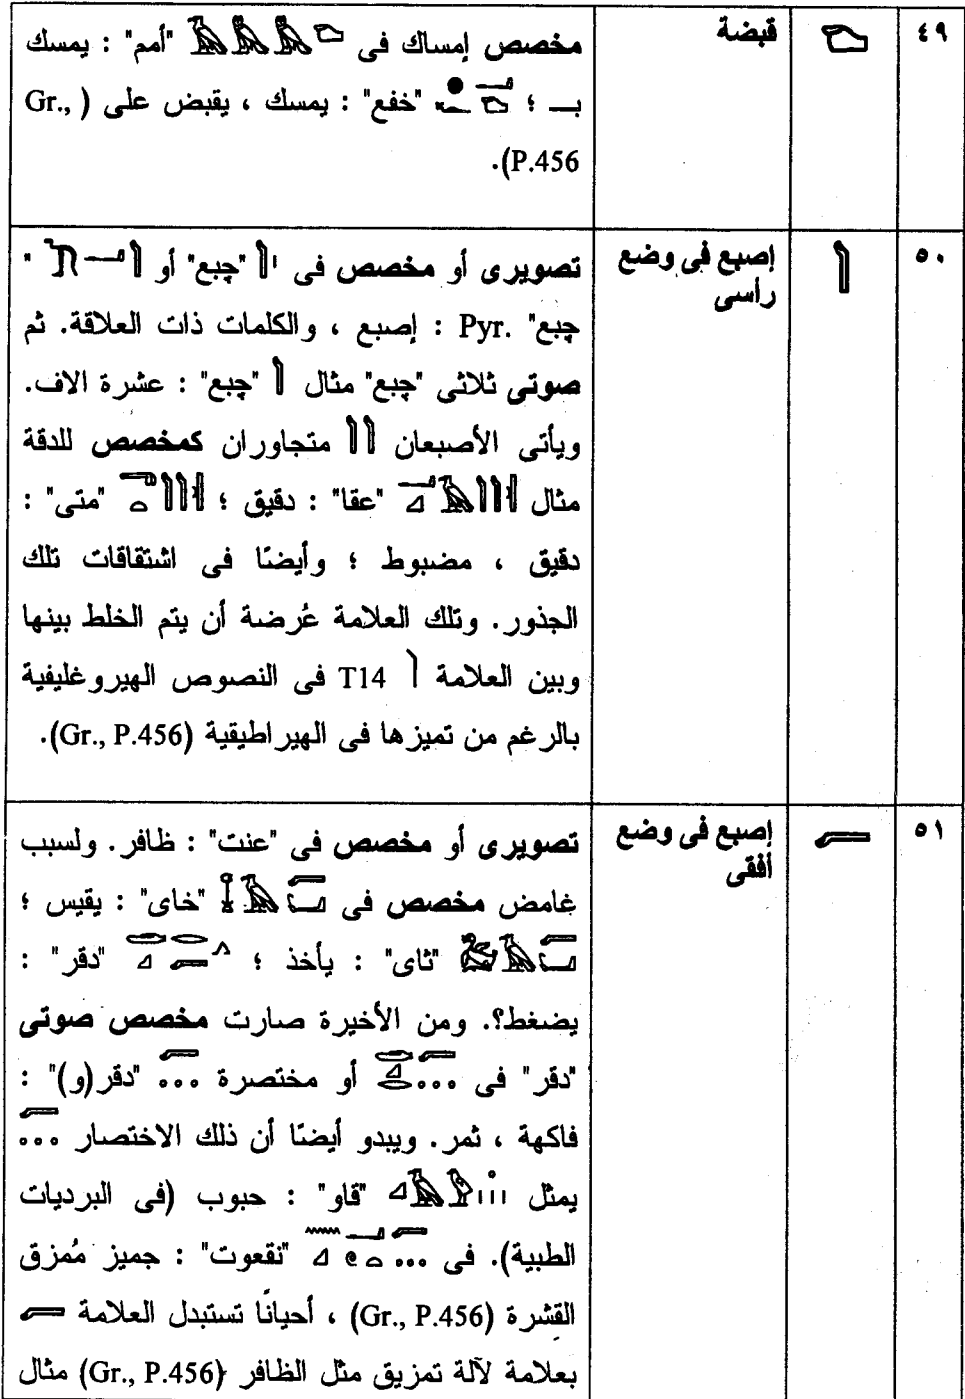 ٤٩ قبضة مخصص إمساك فى "أمم" : يمسك
بـ ؛ "خفع" : يمسك ، يقبض على (Gr.,
P.456).
٥٠ إصبع فى وضع رأسى تصويرى أو مخصص فى "چبع" أو "
چبع" Pyr. : إصبع ، والكلمات ذات العلاقة. ثم
صوتى ثلاثى "چبع" مثال "چبع" : عشرة الاف.
ويأتى الأصبعان متجاوران كمخصص للدقة
مثال "عقا" : دقيق ؛ "متى" :
دقيق ، مضبوط ؛ وأيضًا فى اشتقاقات تلك
الجذور. وتلك العلامة عُرضة أن يتم الخلط بينها
وبين العلامة T14 فى النصوص الهيروغليفية
بالرغم من تميزها فى الهيراطيقية (Gr., P.456).
٥١ إصبع فى وضع أفقى تصويرى أو مخصص فى "عنت" : ظافر. ولسبب
غامض مخصص فى "خاى" : يقيس ؛
"ثاى" : يأخذ ؛ "دقر" :
يضغط؟. ومن الأخيرة صارت مخصص صوتى
"دقر" فى أو مختصرة "دقر(و)" :
فاكهة ، ثمر. ويبدو أيضًا أن ذلك الاختصار
يمثل "قاو" : حبوب (فى البرديات
الطبية). فى "نقعوت" : جميز مُمزق
القشرة (Gr., P.456) ، أحيانًا تستبدل العلامة
بعلامة لآلة تمزيق مثل الظافر (Gr., P.456) مثال